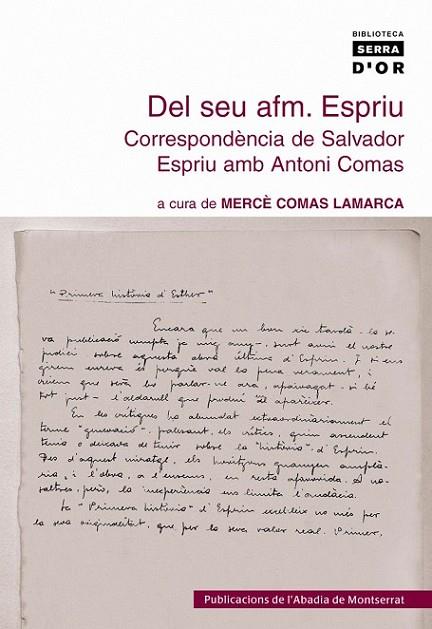 BIBLIOTECA
SERRA
D'OR
Del seu afm. Espriu
Correspondència de Salvador
Espriu amb Antoni Comas
a cura de MERCÈ COMAS LAMARCA
"Primera història d'Esther"
Encara que un bon xic tardà - la se-
va publicació compta ja mig any -, surt avui el nostre
judici sobre aquesta obra última d'Espriu. I si ens
enrera perquè val la pena verament, i
creiem que serà bo parlar-ne ara, apaivagat - si bé
tot just - l'aldarull que produí al aparèixer.
En les crítiques ha abundat extraordinàriament el
terme , palesant, els crítics, quin ascendent
tenia o deixava de tenir sobre la "història" d'Espriu.
Des d'aquest miratge, els horitzons guanyen amplà-
ria, i l'obra, a l'ensems, en resta afavorida. A no-
saltres, però, la inexperiència ens limita l'audàcia.
La "Primera història" d'Espriu excel·leix no més per
la seva originalitat, que per la seva valor real. Primer,
Publicacions de l'Abadia de Montserrat